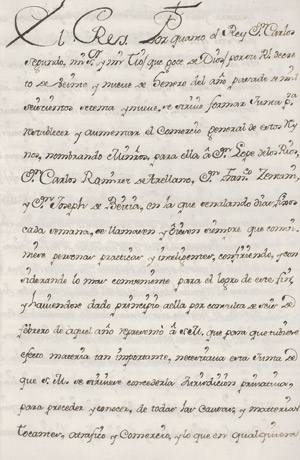 El Rey. Por quanto el Rey Dn. Carlos
segundo, mi Sr. y mi Tio (que goce de Dios) por su Rl. decre-
to de Veinte y nueve de Henero del año passado de mil
seiscientos setenta y nueve, se sirvio formar Junta pa.
restablecer y aumentar el Comercio general de estos Rey-
nos, nombrando Ministros para ella â Dn. Lope de los Rios,
Dn. Carlos Ramirez de Arellano, Dn. Franco.
y Dn. Joseph de Beitia, en la que señalando dias fixos
cada semana, se llamasen y oyesen siempre que combi-
niese personas practicas, y inteligentes, confiriendo, y con-
siderando lo mas combeniente para el logro de este fin,
y haviendose dado principio aella por consulta de seis de
febrero de aquel año represento â S.M. que para que tubiese
efecto materia tan importante, necesitaua esta Junta de
que S.M. se sirviese concederla Jurisdicion privativa,
para proceder y conocer, de todas las causas, y materias
tocantes, atrafico y Comercio, y lo que en qualquiera